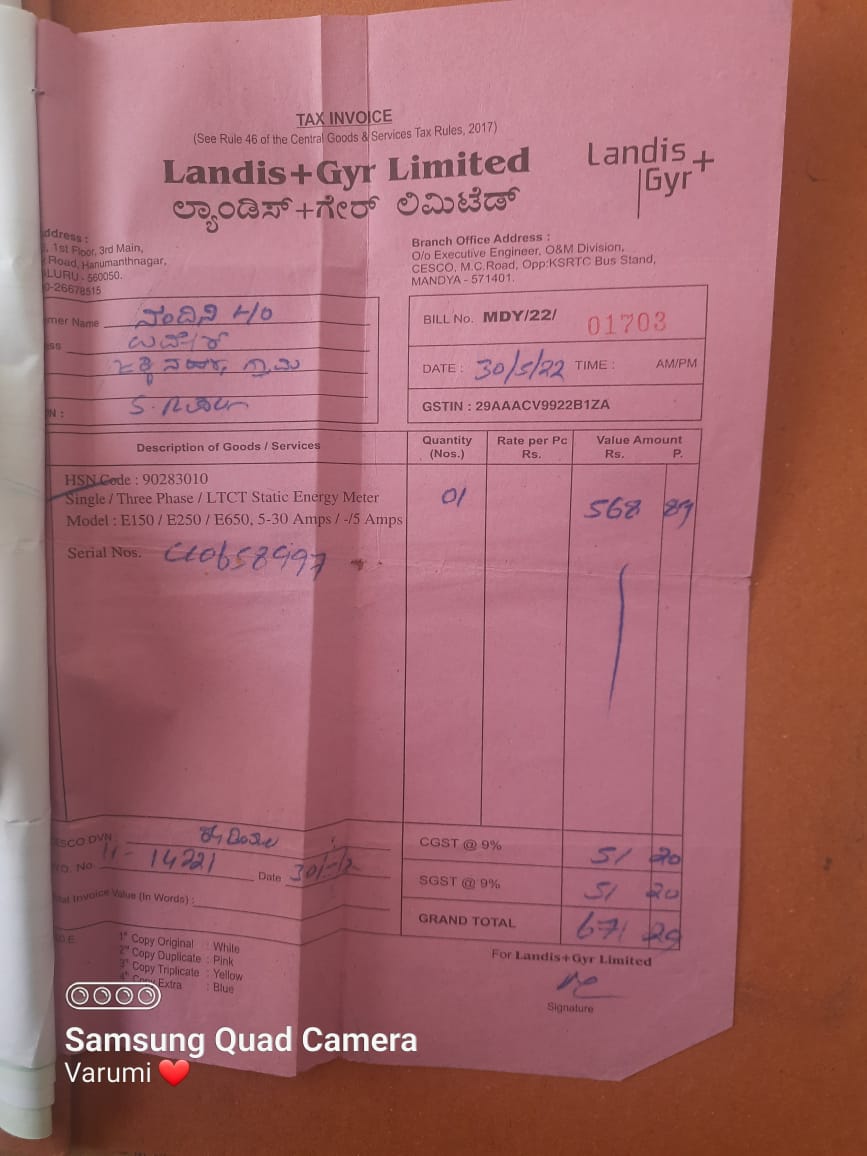 TAX INVOICE
(See Rule 46 of the Central Goods & Services Tax Rules, 2017)
Landis+Gyr Limited
ಲ್ಯಾಂಡಿಸ್+ಗೇರ್ ಲಿಮಿಟೆಡ್
Landis+
Gyr
ddress :
1st Floor, 3rd Main,
Road, Hanumanthnagar,
LURU - 560050.
0-26678515
Branch Office Address :
O/o Executive Engineer, O&M Division,
CESCO, M.C.Road, Opp:KSRTC Bus Stand,
MANDYA - 571401.
mer Name
ss
N :
BILL No. MDY/22/ 01703
DATE : 30/5/22 TIME : AM/PM
GSTIN : 29AAACV9922B1ZA
Description of Goods / Services Quantity (Nos.) Rate per Pc Rs. Value Amount Rs. P.
HSN Code : 90283010
Single / Three Phase / LTCT Static Energy Meter 01 568 89
Model : E150 / E250 / E650, 5-30 Amps / -/5 Amps
Serial Nos.
ESCO DVN
No. 14221 Date
Invoice Value (In Words) :
CGST @ 9% 51 20
SGST @ 9% 51 20
GRAND TOTAL 671 29
1st Copy Original : White
2nd Copy Duplicate : Pink
3rd Copy Triplicate : Yellow
Extra : Blue
For Landis+Gyr Limited
Signature
Samsung Quad Camera
Varumi ❤️